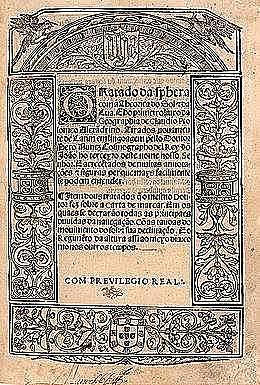 Tratado da sphera
com a Theorica do Sol & da
Lua. E ho primeiro liuro da
Geographia de Claudio Pto
lomeo Alexãdrino. Tirados nouamen
te de Latim em lingoagem pello Doutor
Pero Nunez Cosmographo del Rey dõ
João ho terceyro deste nome nosso Se
nhor. E acrecẽtados de muitas annota
ções & figuras per que mays facilmente
se podem entender.
Item dous tratados q̃ o mesmo Dou
tor fez sobre a carta de marear. Em os
quaes se decrarão todas as principaes
duuidas da nauegação. Cõ as tauoas do
mouimento do sol: & sua declinação. E o
Regimẽto da altura assi ao meyo dia: co
mo nos outros tempos.
CON PREVILEGIO REAL.